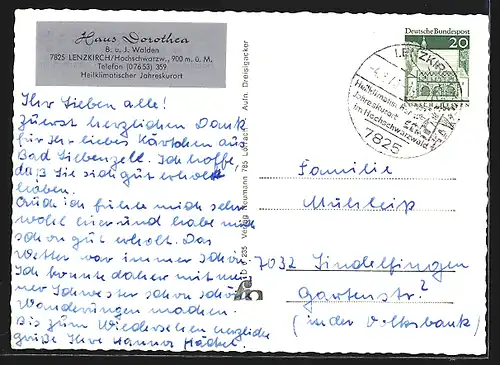 Haus Dorothea
B. u. J. Walden
7825 LENZKIRCH/Hochschwarzw., 900 m. ü. M.
Telefon (07653) 359
Heilklimatischer Jahreskurort
Deutsche Bundespost
20
LENZKIRCH
Heilklimatischer
Jahreskurort
im Hochschwarzwald
7825
Ihr Lieben alle!
Zuerst herzlichen Dank
für Ihr liebes Kärtchen aus
Bad Liebenzell. Ich hoffe,
daß Sie sich gut erholt
haben.
Auch ich fühle mich sehr
wohl hier und habe mich
schon gut erholt. Das
Wetter war immer schön.
Ich konnte daher mit mei-
ner Schwester schon schöne
Wanderungen machen.
Bis zum Wiedersehen herzliche
Grüße Ihre Hanner
D 9235 Verlag Neumann 785 Lörrach Aufn. Dreisigacker
Familie
Mühleip
7032 Sindelfingen
Gartenstr. 2
(in der Volksbank)